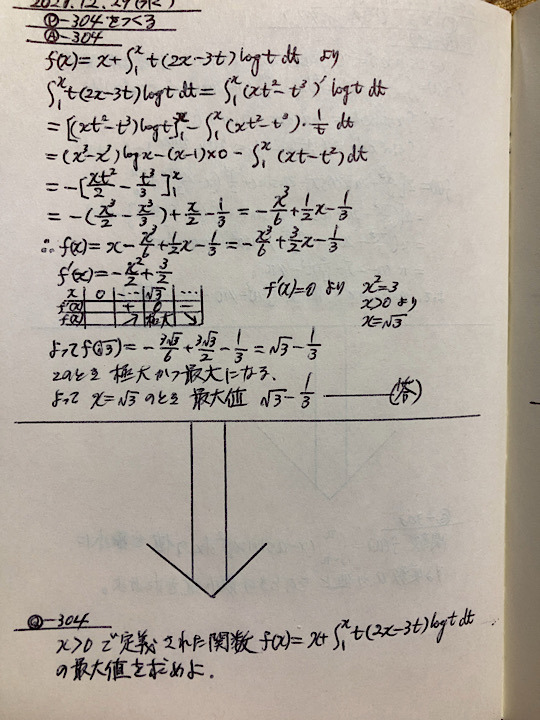 Ⓠ-304をつくる
Ⓐ-304
f(x)=x+∫₁ˣt(2x-3t)logt dt より
∫₁ˣt(2x-3t)logt dt=∫₁ˣ(xt²-t³)'logt dt
=[(xt²-t³)logt]₁ˣ-∫₁ˣ(xt²-t³)・1/t dt
=(x³-x³)logx-(x-1)×0-∫₁ˣ(xt-t²)dt
=-[xt²/2-t³/3]₁ˣ
=-(x³/2-x³/3)+x/2-1/3=-x³/6+1/2x-1/3
∴f(x)=x-x³/6+1/2x-1/3=-x³/6+3/2x-1/3
f'(x)=-x²/2+3/2 f'(x)=0 より x²=3
x>0 より
x=√3
x 0 … √3 …
f'(x) + 0 -
f(x) ↗ 極大 ↘
よってf(√3)=-3√3/6+3√3/2-1/3=√3-1/3
このとき 極大かつ最大になる.
よって x=√3 のとき 最大値 √3-1/3 ―――(答)
Ⓠ-304
x>0 で定義された関数 f(x)=x+∫₁ˣt(2x-3t)logt dt
の最大値を求めよ.